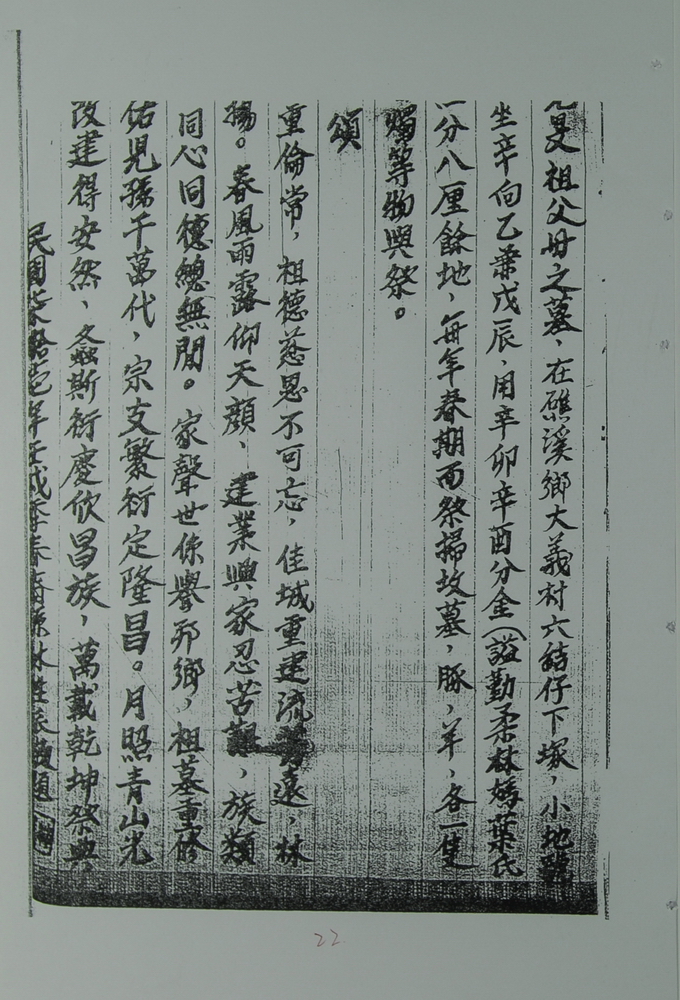 旻祖父母之墓、在礁溪鄉大義村六結仔下塚，小地號
坐辛向乙兼戊辰、用辛卯辛酉分金（諡勤柔林媽葉氏
分八厘餘地，每年春期而祭掃坟墓，豚，羊，各一隻
等物與祭。
頌
重倫常，祖德慈恩不可忘，佳城重建流遠，林
揚。春風雨露仰天顏、建業興家忍苦艱，族類
同心同德總無間。家聲世係譽邦鄉，祖墓重修
佑児孫千萬代，宗支繁衍定隆昌。月照青山光
改建得安然、螽斯衍慶欣昌族，萬載乾坤祭典
民國年壬戌季春裔孫林
22